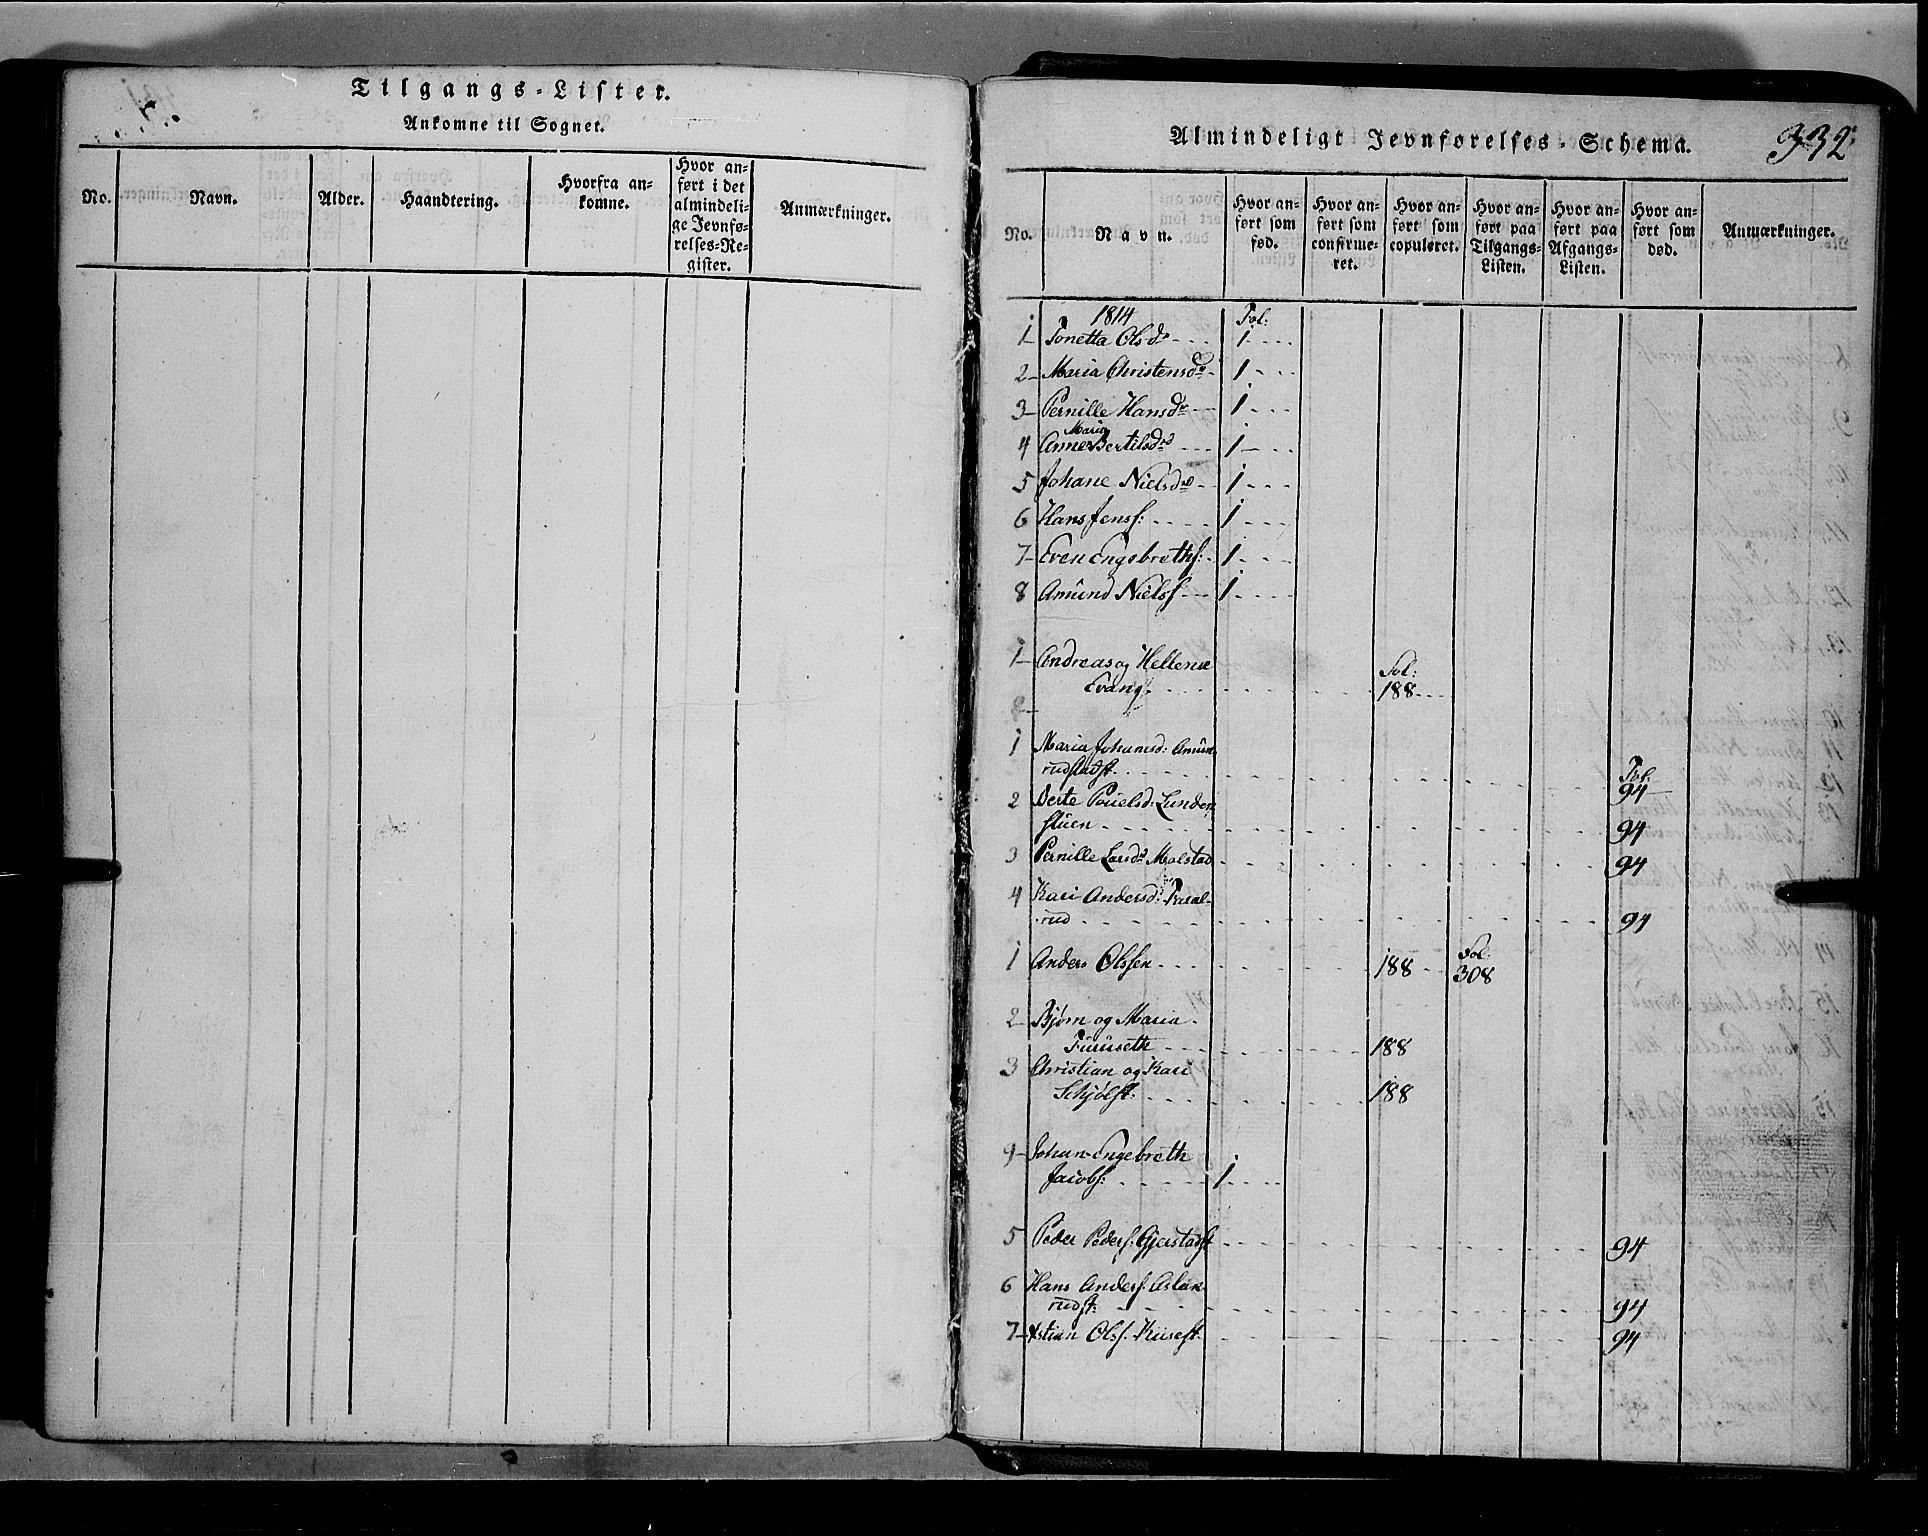 Tilgangs-Lister.
Ankomne til Sognet.
No.
Navn.
Alder.
Haandtering.
Hvorfra an-
komne.
Hvor an-
ført i det
almindeli-
ge Jevnfø-
relses-Re-
gister.
Anmærkninger.
Almindeligt Jevnførelses-Schema.
332
No.
Navn.
Hvor an-
ført som
fød.
Hvor an-
ført som
confirme-
ret.
Hvor an-
ført som
copuleret.
Hvor an-
ført paa
Tilgangs-
Listen.
Hvor an-
ført paa
Afgangs-
Listen.
Hvor an-
ført som
død.
Anmærkninger.
1814 Fol:
1 Tonetta Olsdr 1
2 Maria Christensdr 1
3 Pernille Hansdr 1
Maria
4 Anne Bertilsdr 1
5 Johane Nielsdr 1
6 Hans Jensf: 1
7 Even Engebrethsf: 1
8 Amund Nielsf 1
1 Andreas og Hellene Fol:
Evang. 188
1 Maria Johansd: Amün-
rudstadst. Fol: 94
2 Berte Pouelsd: Lunden
stüen 94
3 Pernille Larsdr Malstad 94
4 Kari Andersdr
rud 94
1 Anders Olssen 188 Fol: 308
2 Bjørn og Maria
Furüseth 188
3 Christian og Kari
Schjølst: 188
9 Johan Engebreth
Jacobsf: 1
5 Peder Pedersf. Gjerstadst 94
6 Hans Andersf. Aslak
rudst: 94
7 Xstian Olsf. Kürst 94